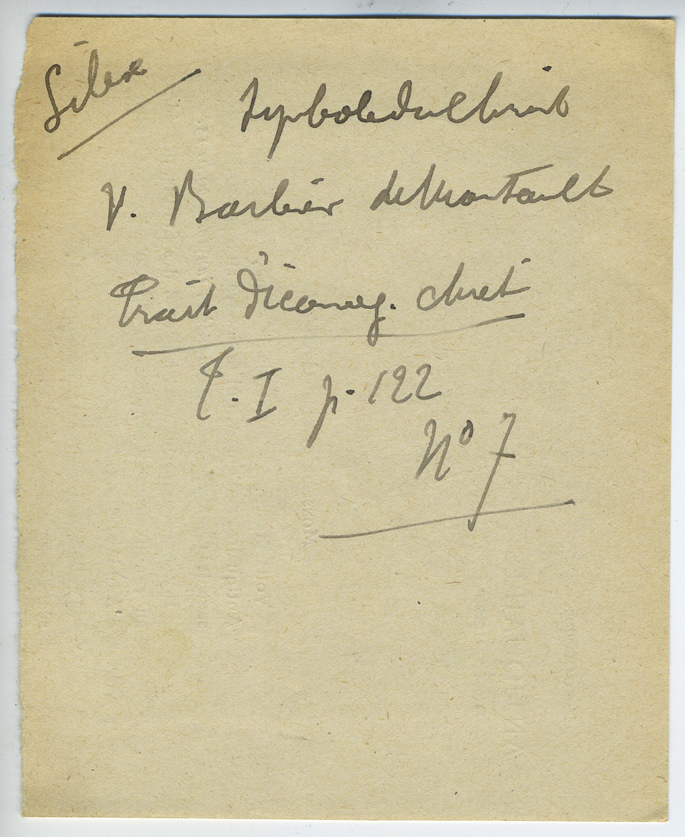 Silex
Symbole du Christ
V. Barbier de Montault
Trait d'iconog. chret
T. I p. 122
No 7